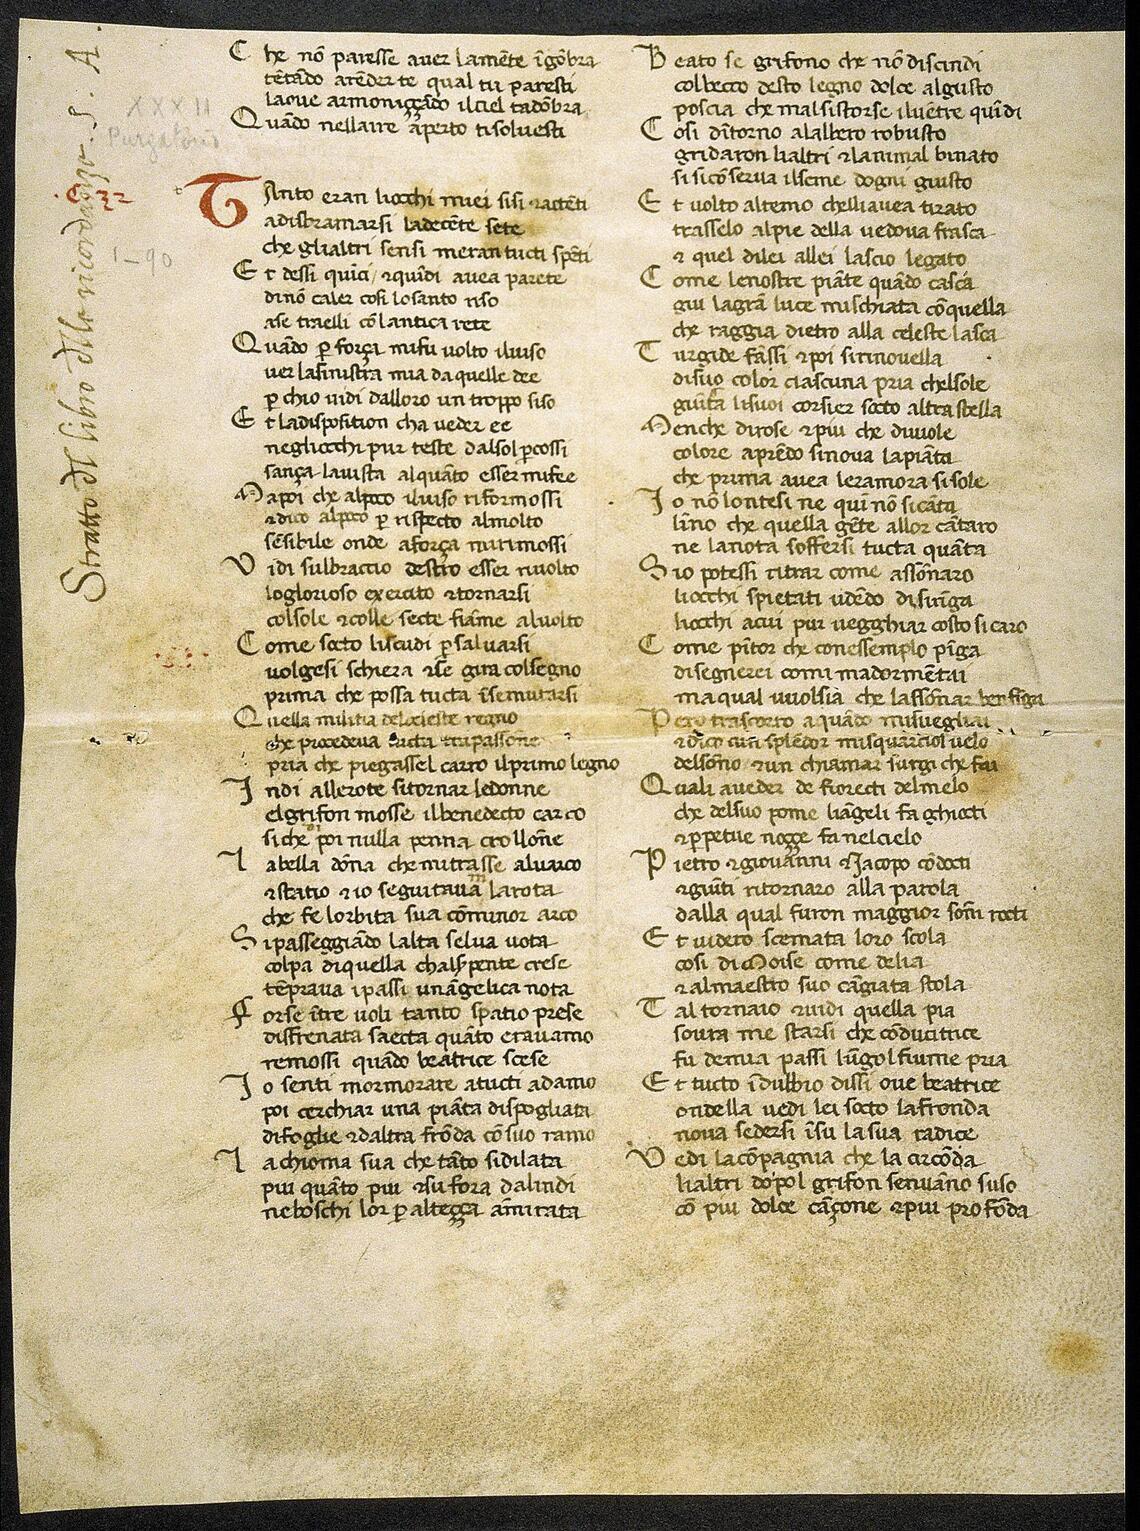 Stratto dl libro dlle ricordanze s. A.
XXXII
Purgatorio
C. 32
1-90
C he nō paresse auer lamēte īgōbra
tētādo arēder te qual tu paresti
laoue armoniçça͞do ilciel tadōbra
Quādo nellaire aperto tisoluesti
TAnto eran liocchi miei fisi ⁊actēti
adisbramarsi ladecēte sete
che glialtri sensi meran tucti spēti
E t dessi quīci / ⁊quīdi auea parete
dinō caler cosi losanto riso
ase traelli cō lantica rete
Quādo ꝑ força mifu uolto iluiso
uer lasinistra mia da quelle dee
ꝑ chio uidi dalloro un troppo fiso
E t ladisposition cha ueder ee
negliocchi pur teste dalsol ꝑcossi
sança lauista alquāto esser mifee
Mapoi che alpoco iluiso riformossi
⁊dico alpoco ꝑ rispecto almolto
sēsibile onde aforça mirimossi
V idi sulbraccio destro esser riuolto
loglorioso exercito ⁊tornarsi
colsole ⁊colle secte fiāme aluolto
C ome socto liscudi ꝑ saluarsi
uolgesi schiera ⁊se gira colsegno
prima che possa tucta īsemutarsi
Q uella militia delceleste regno
che procedeua tucta trapassone
pria che piegassel carro ilprimo legno
I ndi allerote sitornar ledonne
elgrifon mosse ilbenedecto carco
siche poi nulla penna crollone
L abella dōna che mitrasse aluarco
⁊statio ⁊io seguitauam larota
che fe lorbita sua cōminor arco
S ipasseggiādo lalta selua uota
colpa diquella chalsꝑpente crese
tēpraua ipassi unāgelica nota
F orse ītre uoli tanto spatio prese
disfrenata saecta quāto erauamo
remossi quādo beatrice scese
I o senti mormorare atucti adamo
poi cerchiar una piāta dispogliata
difoglie ⁊daltra frōda cō suo ramo
L achioma sua che tāto sidilata
piu quāto piu ⁊su fora dalindi
neboschi lor ꝑ alteçça āmirata
B eato se grifono che nō discindi
colbecco desto legno dolce algusto
poscia che malsistorse iluētre quīdi
C osi dītorno alalbero robusto
gridaron lialtri ⁊lanimal binato
si sicōserua ilseme dogni giusto
E t uolto altemo chelliauea tirato
trasselo alpie della uedoua frasca
⁊ quel dilei allei lascio legato
C ome lenostre piāte quādo casca
giu lagrā luce mischiata cōquella
che raggia dietro alla celeste lasca
T urgide fassi ⁊poi sirinouella
disuo color ciascuna pria chelsole
giūta lisuoi corsier socto altra stella
Menche dirose ⁊piu che diuiole
colore aprēdo sinoua lapiāta
che prima auea leramora sisole
I o nō lontesi ne quī nō sicāta
līno che quella gēte allor cātaro
ne lanota soffersi tucta quāta
S io potessi ritrar come assōnaro
liocchi spietati udēdo disiringa
liocchi acui pur uegghiar costo si caro
C ome pītor che conessemplo pīga
disegnerei comi madormētai
maqual uuolsia che lassōnar ben figa
Pero trascorro aquādo misuegliai
⁊dico cun splēdor misquarciol uelo
delsōno ⁊un chiamar surgi che fai
Q uali aueder de fiorecti delmelo
che delsuo pome liāgeli fa ghiocti
⁊ꝑpetue noçe fa nelcielo
P ietro ⁊giouānni ⁊Jacopo cōdocti
⁊giūti ritornaro alla parola
dalla qual furon maggior sōni rocti
E t uidero scemata loro scola
cosi diMoise come delia
⁊almaestro suo cāgiata stola
T al tornaio ⁊uidi quella pia
soura me starsi che cōducitrice
fu demia passi lūgol fiume pria
E t tucto īdubbio dissi oue beatrice
ondella uedi lei socto lafronda
noua sedersi īsu la sua radice
V edi lacōpagnia che la circōda
lialtri dopol grifon senuāno suso
cō piu dolce cāçone ⁊piu profōda